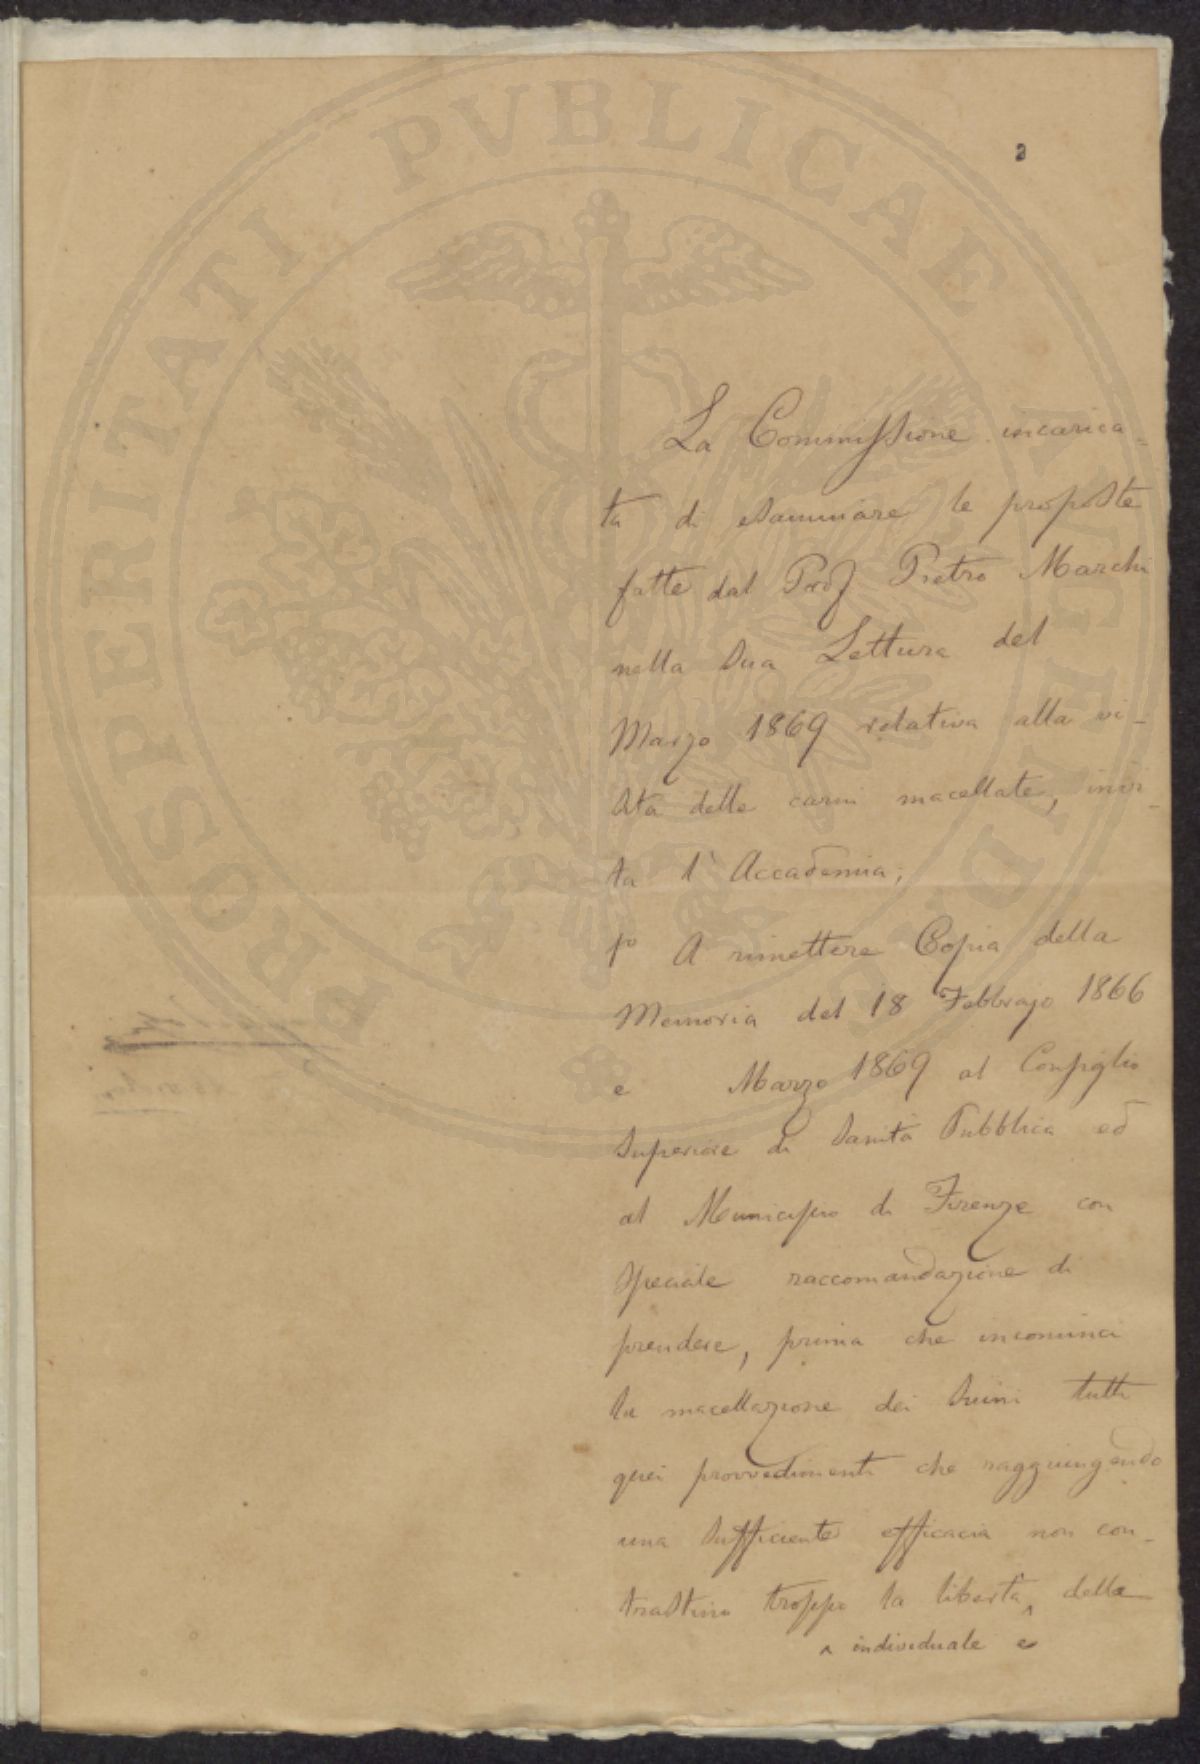 2
La Commissione incarica-
ta di esaminare le proposte
fatte dal Prof Pietro Marchi
nella sua Lettura del
Marzo 1869 relativa alla vi-
sita delle carni macellate, invi-
ta l'Accademia;
1º A rimettere Copia della
Memoria del 18 Febbrajo 1866
e Marzo 1869 al Consiglio
Superiore di Sanità Pubblica ed
al Municipio di Firenze con
speciale raccomandazione di
prendere, prima che incominci
la macellazione dei suini tutti
quei provvedimenti che raggiungendo
una sufficiente efficacia non con-
trastino troppo la libertà ^ delle
^ individuale e
PROSPERITATI PVBLICAE AVGENDAE